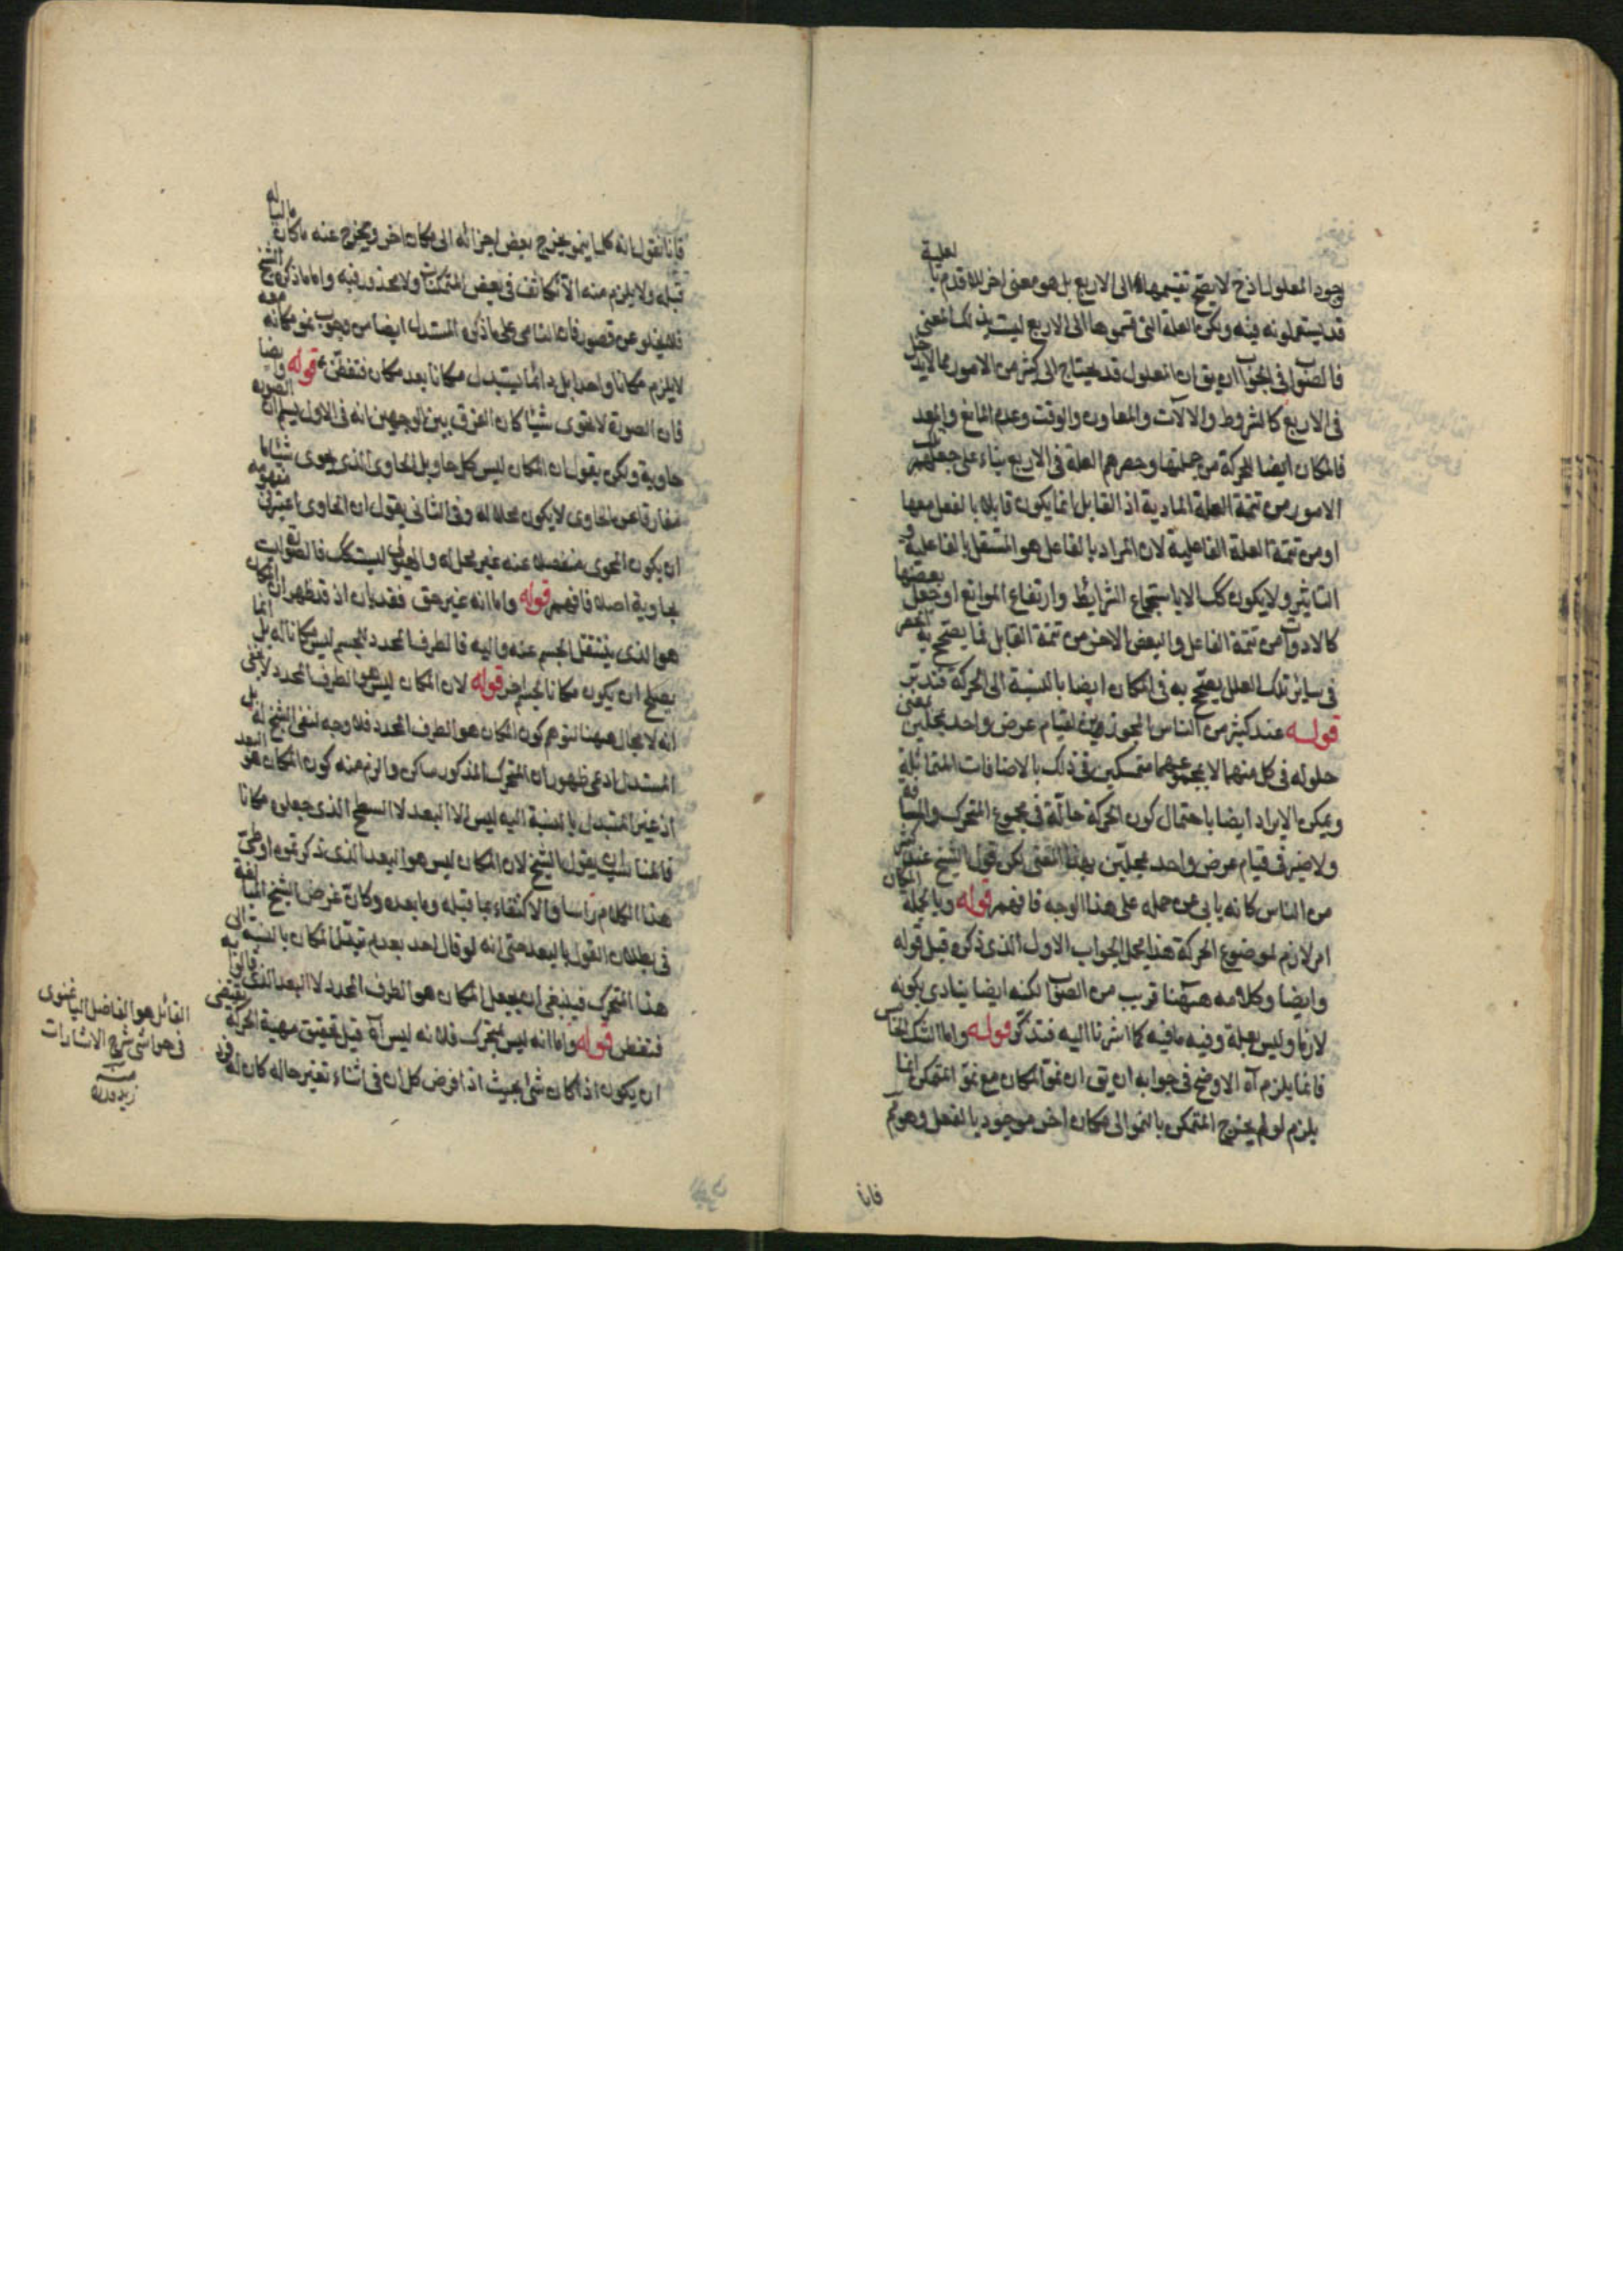 وجود المعلول اذ ح لا يصح تقسيمها الى الاربع بل هو معنى اخر للاقدم بالعلية
قد يستعملونه فيه ولكن العلة التى قسموها الى الاربع ليست بذلك المعنى
فالصواب فى الجواب ان يق ان المعلول قد يحتاج الى كثير من الامور مما لا يدخل
فى الاربع كالشروط والالات والمعاون والوقت وعدم المانع والمعد
فالمكان ايضا للحركة من جملتها وحصرهم العلة فى الاربع بناء على جعلهم
الامور من تتمة العلة المادية اذ القابل انما يكون قابلا بالفعل معها
او من تتمة العلة الفاعلية لان المراد بالفاعل هو المستقل بالفاعلية و
التاثير ولا يكون كك الا باستجماع الشرائط وارتفاع الموانع او جعل بعضها
كالادوات من تتمة الفاعل والبعض الاخر من تتمة القابل فما يصحح به الحصر
فى سائر تلك العلل يصحح به فى المكان ايضا بالنسبة الى الحركة فتدبر
قوله عند كثير من الناس المجوزين لقيام عرض واحد بمحلين بمعنى
حلوله فى كل منهما لا بمجموعهما متمسكين فى ذلك بالاضافات المتماثلة
ويمكن الايراد ايضا باحتمال كون الحركة حالة فى مجموع المتحرك والمسافة
ولا ضير فى قيام عرض واحد بمحلين بهذا المعنى لكن قول الشيخ عند كثير
من الناس كانه يابى عن حمله على هذا الوجه فافهم قوله وبالجملة المكان
امر لازم لموضوع الحركة هذا محل الجواب الاول الذى ذكره قبل قوله
وايضا وكلامه هيهنا قريب من الصواب لكنه ايضا ينادى بكونه
لازما وليس بعلة وفيه ما فيه كما اشرنا اليه فتذكر قوله واما الشك الخامس
فانما يلزم آه الاوضح فى جوابه ان يق ان نمو المكان مع نمو المتمكن انما
يلزم لو لم يخرج المتمكن بالنمو الى مكان اخر موجود بالفعل وهو مم
فانا
فانا نقول انه كلما ينمو يخرج بعض اجزائه الى مكان اخر ويخرج عنه ما كان مالياله
قبله ولا يلزم منه الا تكاثف فى بعض المتمكنات ولا محذور فيه واما ما ذكره الشيخ
فلا يخلو عن قصور فان النامى على ما ذكره المستدل ايضا من وجوب نمو مكانه معه
لا يلزم مكانا واحدا بل دائما يتبدل مكانا بعد مكان فتفطن قوله وايضا
فان الصورة لا تحوى شيئا كان الفرق بين الوجهين انه فى الاول يسلم ان الصورة
حاوية ولكن يقول ان المكان ليس كل حاو بل الحاوى الذى يحوى شيئا ما
مفارقا عن الحاوى لا يكون محلا له وفى الثانى يقول ان الحاوى اعتبر فى مفهومه
ان يكون المحوى منفصلا عنه غير محل له والهيولى ليست كك فالصورة ليست
بحاوية اصلا فافهم قوله واما انه غير حق فقد بان اذ قد ظهر ان المكان
هو الذى ينتقل الجسم عنه واليه فالطرف المحدد للجسم ليس مكانا له بل انما
يصلح ان يكون مكانا لجسم اخر قوله لان المكان ليس هو الطرف المحدد لا يخفى
انه لا مجال هيهنا لتوهم كون المكان هو الطرف المحدد فلا وجه لنفى الشيخ له بل
المستدل ادعى ظهور ان المتحرك المذكور ساكن والزم منه كون المكان هو البعد
اذ غير المتبدل بالنسبة اليه ليس الا البعد لا السطح الذى جعلوه مكانا
فالمناسب ان يقول الشيخ لان المكان ليس هو البعد الذى ذكرتموه او طى
هذا الكلام راسا والاكتفاء بما قبله وما بعده وكان غرض الشيخ المبالغة
فى بطلان القول بالبعد حتى انه لو قال احد بعدم تبدل المكان بالنسبة الى
هذا المتحرك فينبغى ان يجعل المكان هو الطرف المحدد لا البعد الذى قالوا به
فتفطن قوله واما انه ليس بمتحرك فلانه ليس آه قيل تحقيق مهية الحركة يقتضى
ان يكون اذا كان شئ بحيث اذا فرض كل ان فى اثناء تغير حاله كان له فرد
القائل هو الفاضل الباغنوى
فى حواشى شرح الاشارات